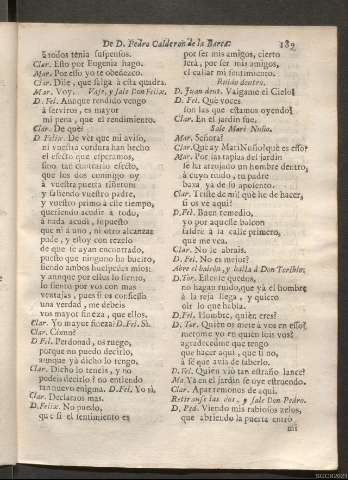 De D. Pedro Calderon de la Barca. 189
à todos tenia suspensos.
Clar. Esto por Eugenia hago.
Mar. Por esso yo te obedezco.
Clar. Dile, que salga à esta quadra.
Mar. Voy. Vase, y sale Don Felix.
D. Fel. Aunque rendido vengo
à serviros, es mayor
mi pena, que el rendimiento.
Clar. De què?
D. Felix. De ver que mi aviso,
ni vuestra cordura han hecho
el efecto que esperamos,
sino tan contrario efecto,
que los dos conmigo oy
à vuestra puerta
y sabiendo vuestro padre,
y vuestro primo à este tiempo,
queriendo acudir à todo,
à nada acudì, supuesto
que ni à uno, ni otro alcanzar
pude, y estoy con rezelo
de que se ayan encontrado,
puesto que ninguno ha bucito,
siendo ambos huespedes mios:
y aunque por ellos lo siento,
lo siento por vos con mas
ventajas, pues si os confiessa
una verdad, me debeis
vos mayor fineza, que ellos.
Clar. Yo mayor fineza? D. Fel. Si.
Clar. Còmo?
D. Fel. Perdonad, os ruego,
porque no puedo decirlo,
aunque yà dicho lo tengo.
Clar. Dicho lo teneis, y no
podeis decirlo? no entiendo
tan nuevo enigma. D. Fel. Yo si.
Clar. Declaraos mas.
D. Felix. No puedo,
que si el sentimiento es
por ser mis amigos, cierto
serà, por ser mis amigos,
el callar mi sentimiento.
Ruido dentro.
D. Juan dent. Valgame el Cielo!
D. Fel. Què voces
son las que estamos oyendo?
Clar. En el jardin fue.
Sale Mari Nuño.
Mar. Señora?
Clar. Què ay Mari Nuño? què es esso?
Mar. Por las tapias del jardin
se ha arrojado un hombre dentro,
à cuyo ruido, tu padre
baxa yà de su aposento.
Clar. Triste de mi! què he de hacer,
si os ve aqui?
D. Fel. Buen remedio,
yo por aquesse balcon
saldrè à la calle primero,
que me vea.
Clar. No le abrais.
D. Fel. No es mejor?
Abre el balcòn, y halla à Don Toribio.
D. Tor. Estese quedos,
no hagan ruido, que yà el hombre
à la reja llega, y quiero
oir lo que habla.
D. Fel. Hombre, quièn eres?
D. Tor. Quièn os mete à vos en esso?
meteme yo en quièn sois vos?
agradecedme que tengo
que hacer aqui, que si no,
à fe que avia de saberlo.
D. Fel. Quièn viò tan estraño lance!
Ma. Yà en el jardin se oye estruendo.
Clar. Apartemonos de aqui.
Retiranse las dos, y sale Don Pedro.
D. Ped. Viendo mis rabiosos zelos,
que abriendo la puerta entrò
mi